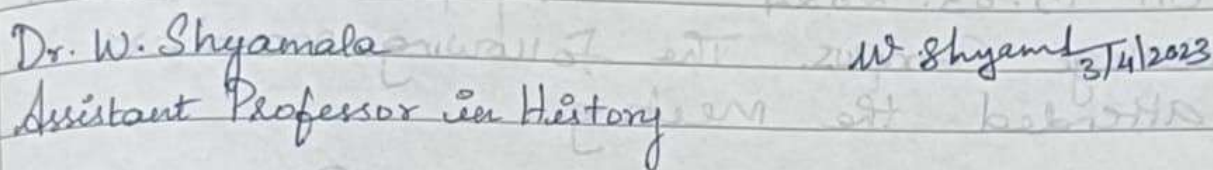 Dr. W. Shyamala W. Shyaml 3/4/2023
Assistant Professor in History